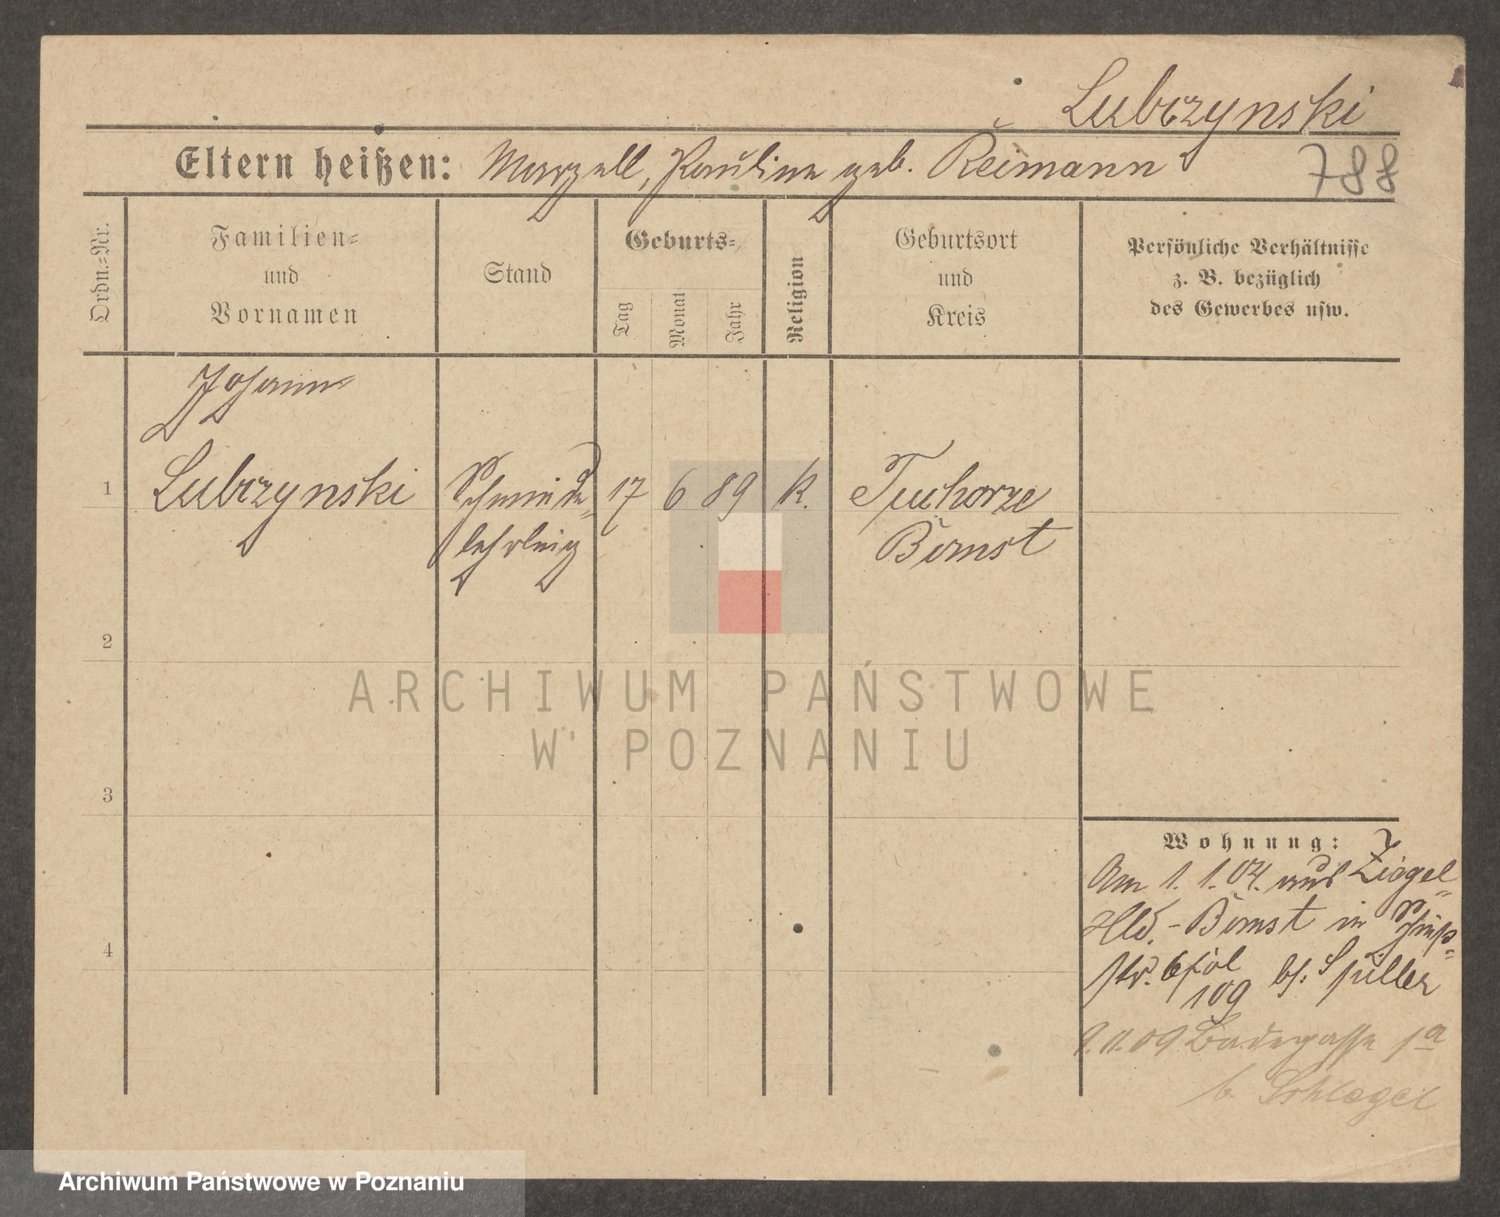 Lubrzynski
Eltern heißen: Marzell, Pauline geb. Reimann
788
Ordn.=Nr.
Familien=
und
Vornamen
Stand
Geburts=
Tag
Monat
Jahr
Religion
Geburtsort
und
Kreis
Persönliche Verhältnisse
z. B. bezüglich
des Gewerbes usw.
Johann
1 Lubrzynski Schmiede= 17 6 89 K. Tuchorze
lehrling Bomst
2
3
4
Wohnung:
Am 1. 1. 04. aus Ziegel=
Hld. - Bomst in
str. bei Spiller
109
Badegasse 1a
b. Schlegel
ARCHIWUM PAŃSTWOWE
W POZNANIU
Archiwum Państwowe w Poznaniu